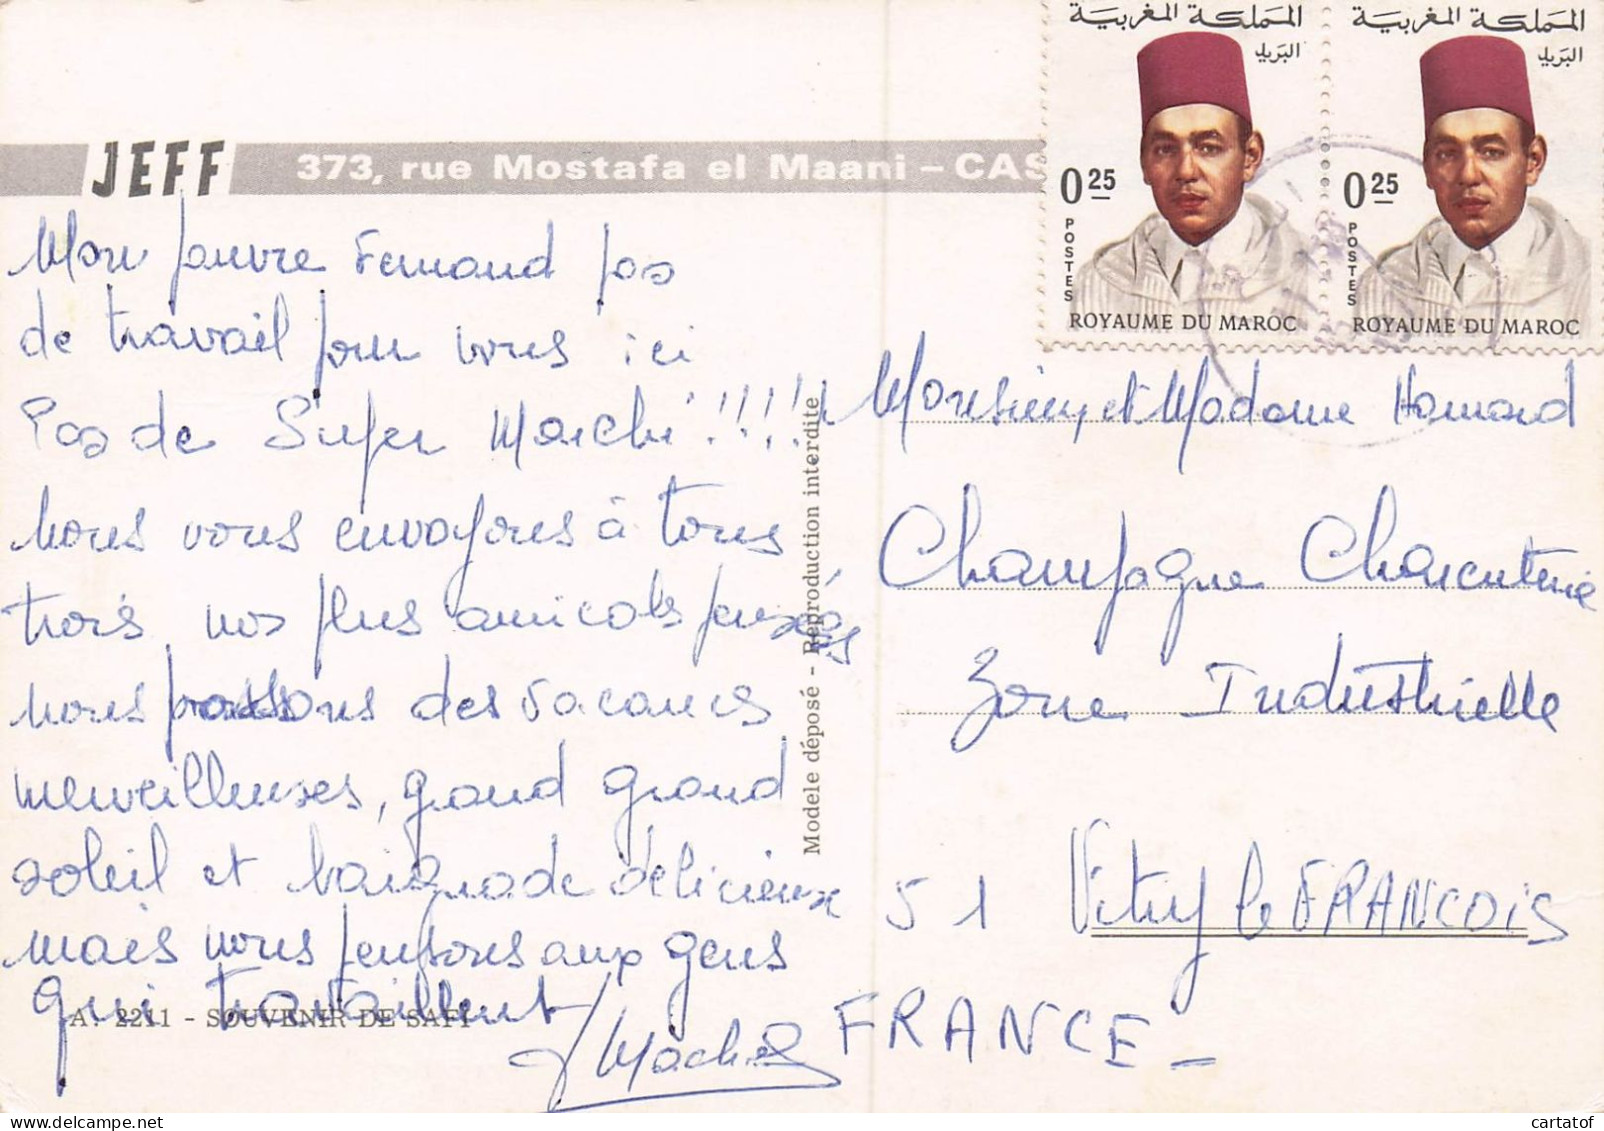 المملكة المغربية
البريد
0.25
POSTES
ROYAUME DU MAROC
المملكة المغربية
البريد
0.25
POSTES
ROYAUME DU MAROC
JEFF 373, rue Mostafa el Maani - CAS
Mon pauvre Fernand pas
de travail pour vous ici
Pas de Super Marché !!!!
nous vous envoyons à tous
trois nos plus amicales pensées
nous passons des vacances
merveilleuses, grand grand
soleil et baignade délicieuse
mais nous pensons aux gens
qui travaillent
A. 2211 - SOUVENIR DE SAFI
Modele déposé - Reproduction interdite
Monsieur et Madame Hamard
Champagne Charcuterie
Zone Industhielle
51 Vitry le FRANCOIS
FRANCE
cartatof